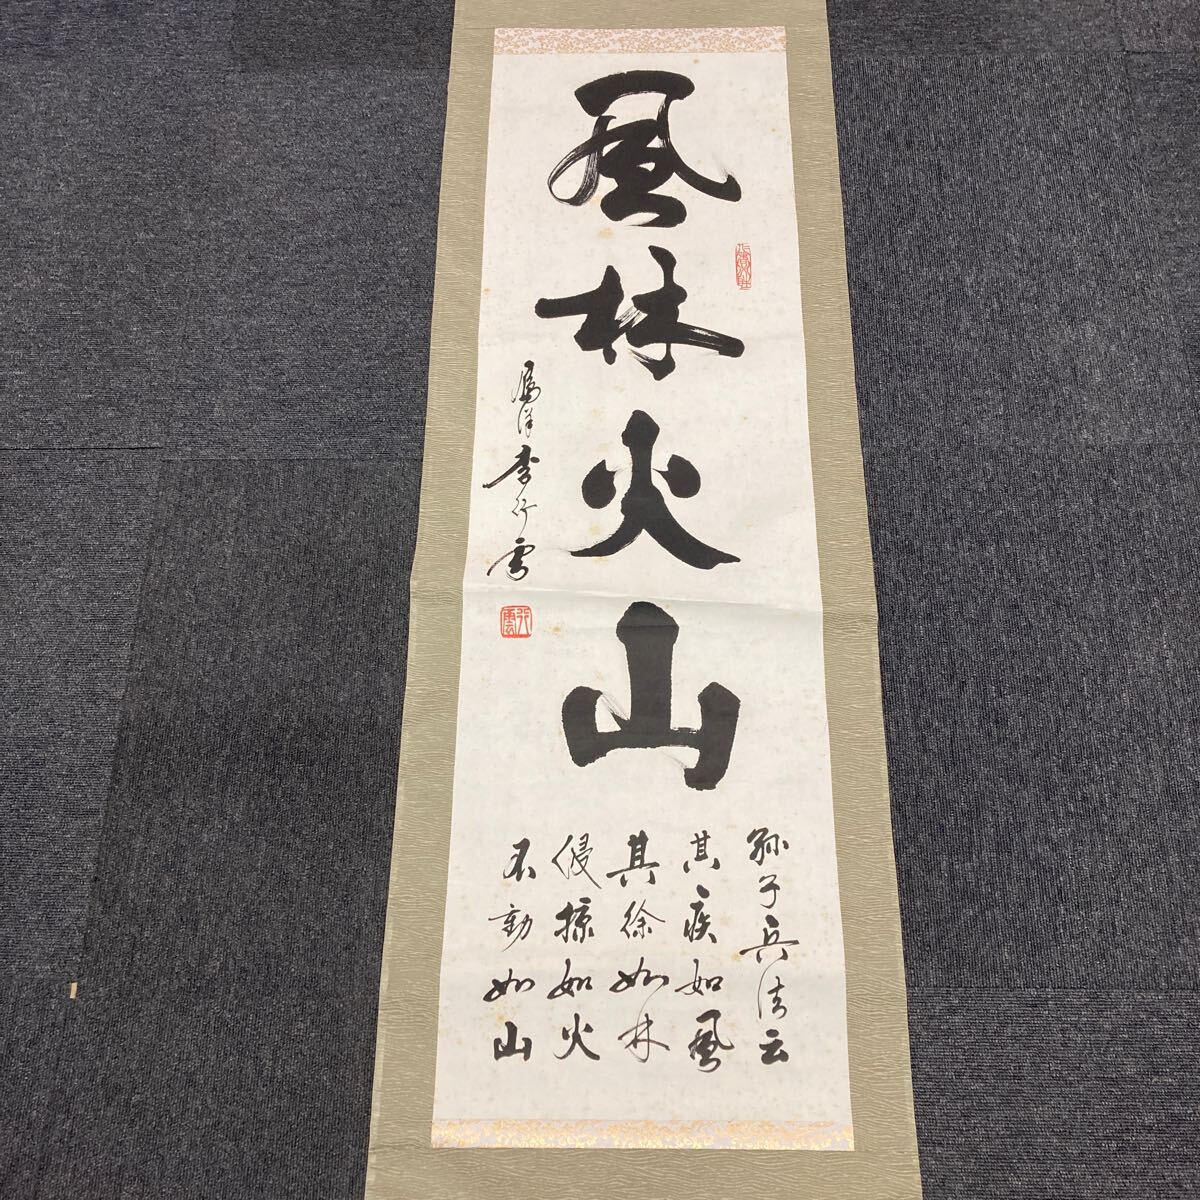 風林火山
孫子兵法云
其疾如風
其徐如林
侵掠如火
不動如山
李行雲
行雲